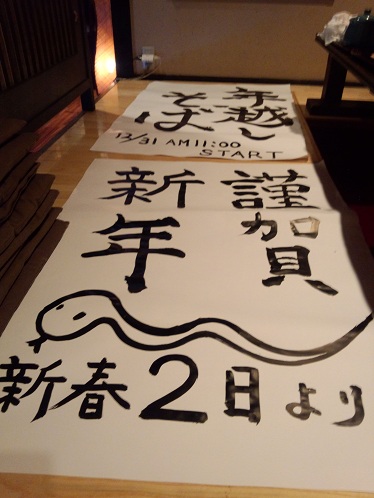 年越し
そば
12/31 AM11:00
START
謹賀
新年
新春2日より